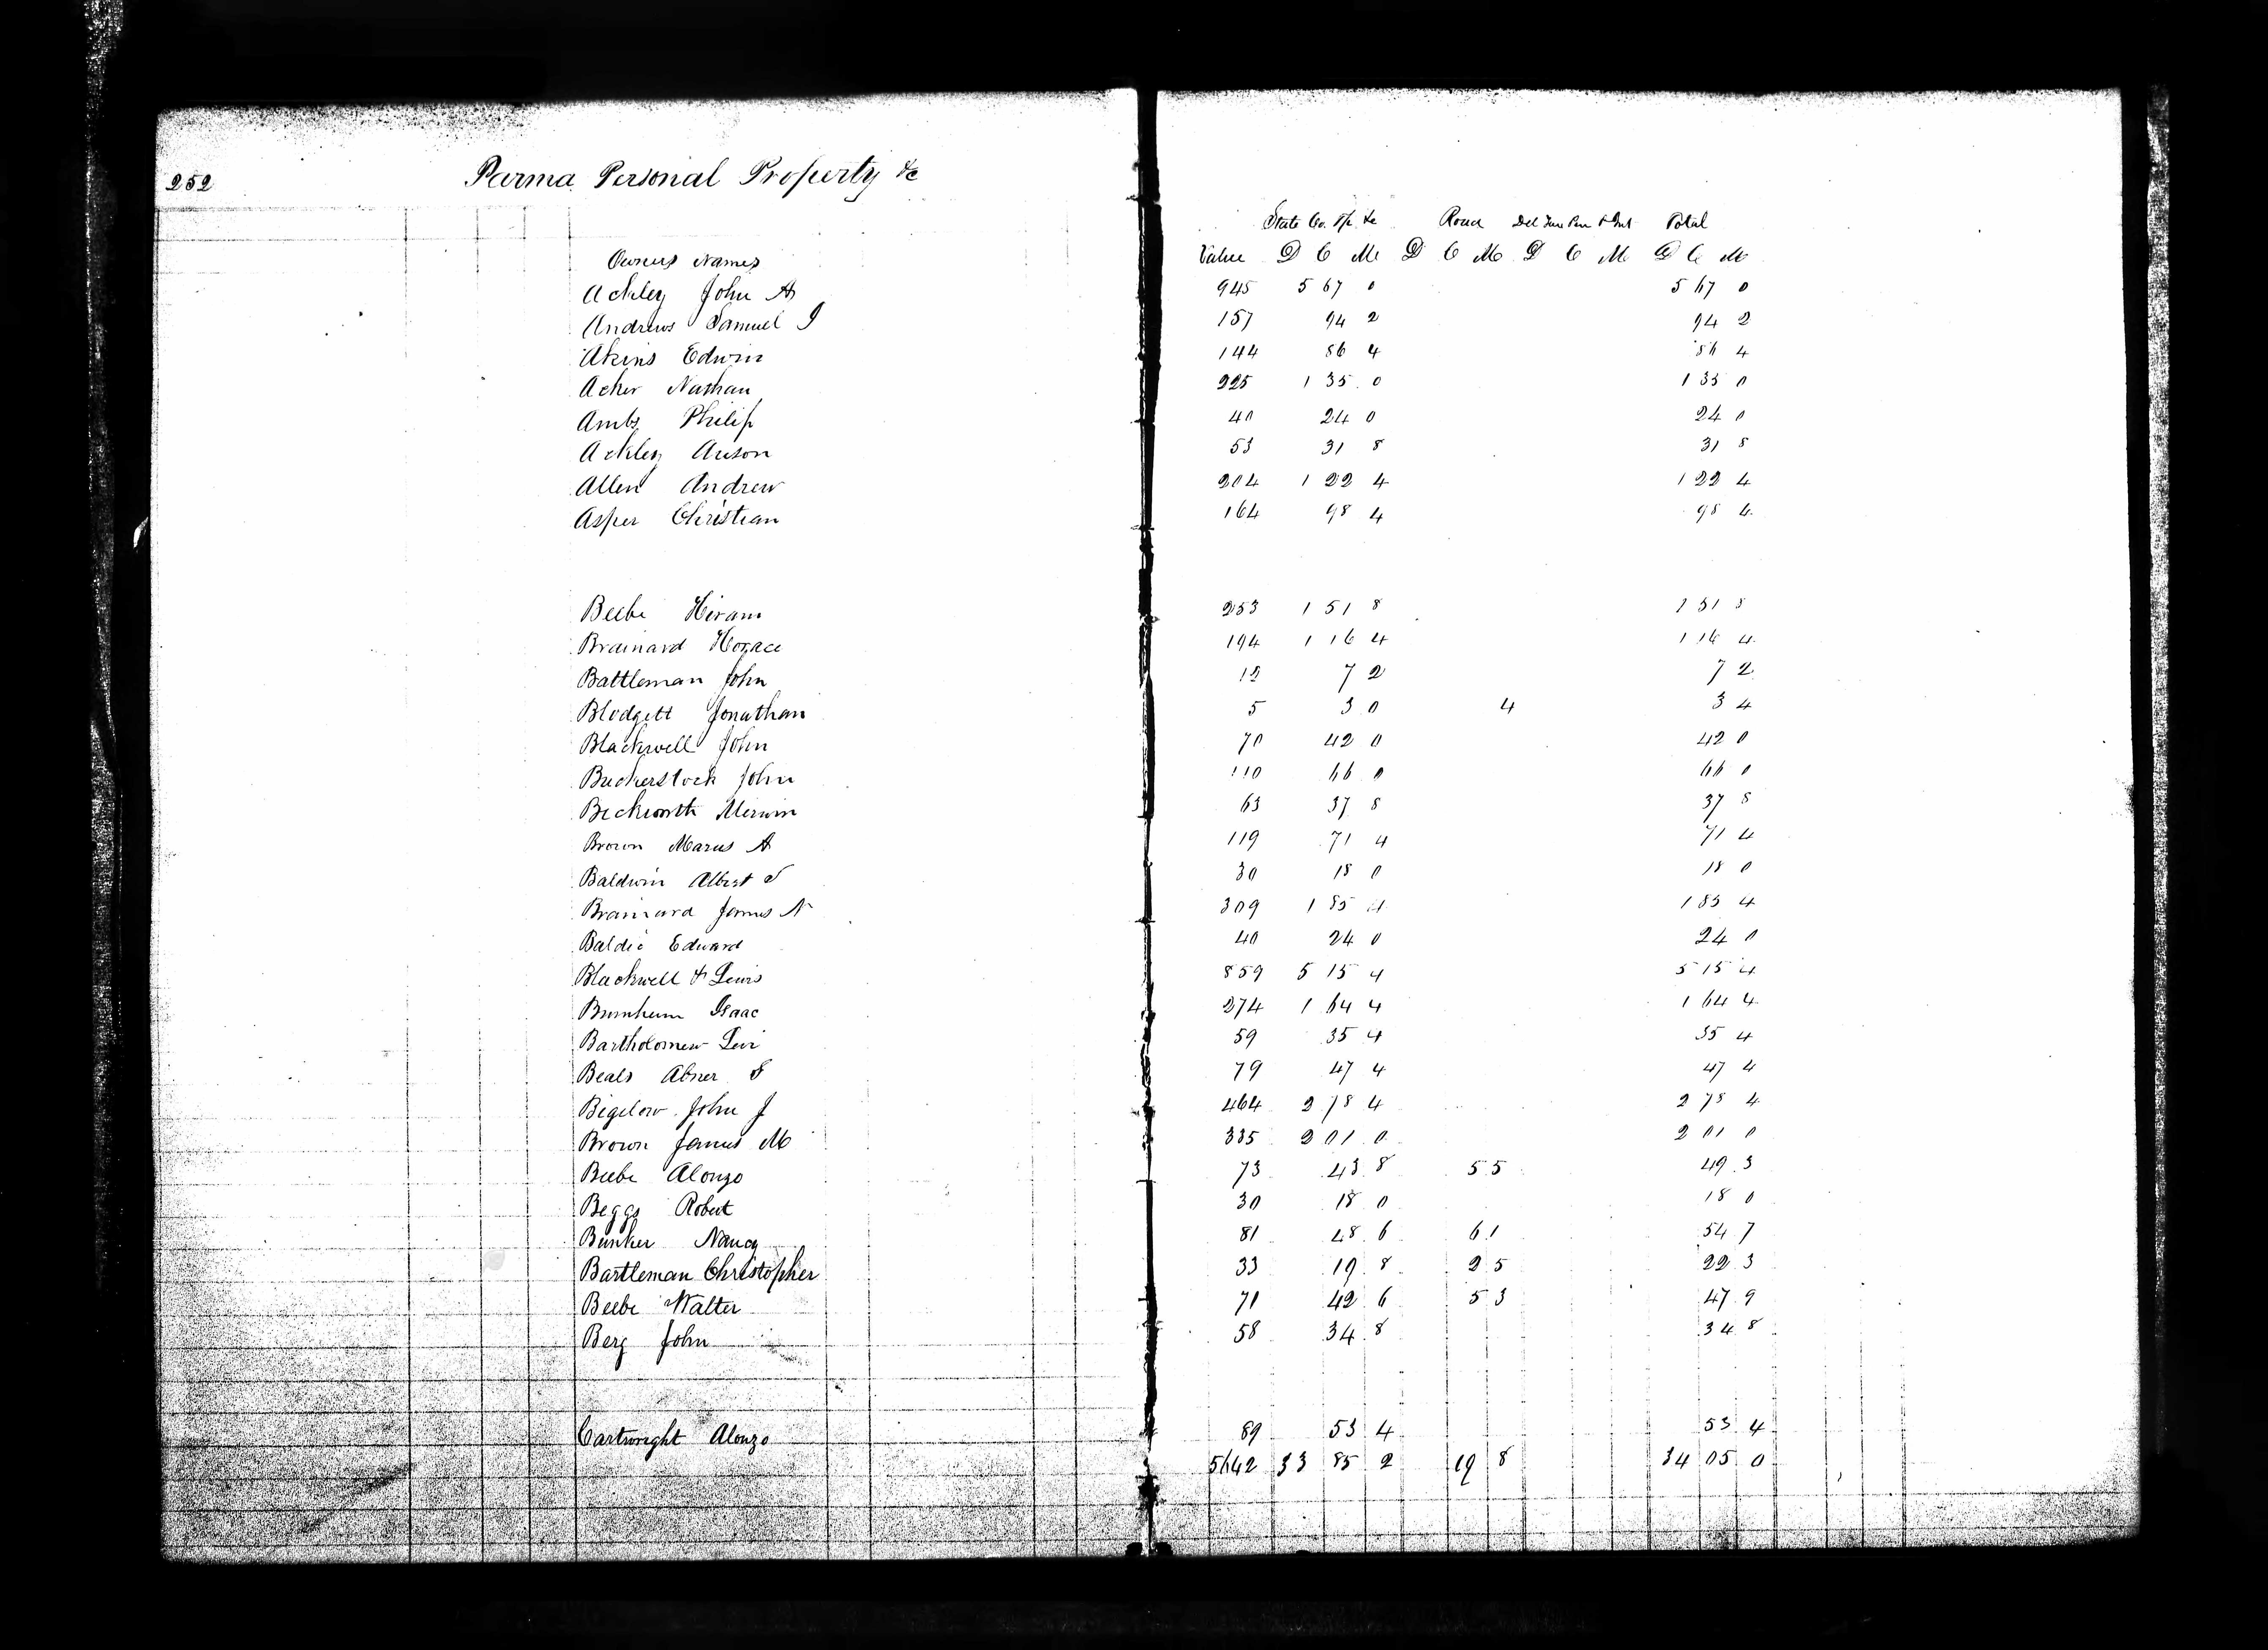 252 Parma Personal Property &c
State Co. Tp. &c Road Del Tax Pen & Int Total
Owners Names Value D C M D C M D C M D C M
Ackley John A 945 5 67 0 5 67 0
Andrews Samuel J 157 94 2 94 2
Akins Edwin 144 86 4 86 4
Acker Nathan 225 1 35 0 1 35 0
Ambs Philip 40 24 0 24 0
Ackley Anson 53 31 8 31 8
Allen Andrew 204 1 22 4 1 22 4
Asper Christian 164 98 4 98 4
Beebe Hiram 253 1 51 8 1 51 8
Brainard Horace 194 1 16 4 1 16 4
Battleman John 12 7 2 7 2
Blodgett Jonathan 5 3 0 4 3 4
Blackwell John 70 42 0 42 0
Buckerstock John 110 66 0 66 0
Beckworth Merwin 63 37 8 37 8
Brown Marus A 119 71 4 71 4
Baldwin Albert S 30 18 0 18 0
Brainard James N 309 1 85 4 1 85 4
Baldie Edward 40 24 0 24 0
Blackwell & Lewis 859 5 15 4 5 15 4
Burnham Isaac 274 1 64 4 1 64 4
Bartholomew Levi 59 35 4 35 4
Beals Abner S 79 47 4 47 4
Bigelow John J 464 2 78 4 2 78 4
Brown James M 335 2 01 0 2 01 0
Beebe Alonzo 73 43 8 5 5 49 3
Beggs Robert 30 18 0 18 0
Bunker Nancy 81 48 6 6 1 54 7
Bartleman Christopher 33 19 8 2 5 22 3
Beebe Walter 71 42 6 5 3 47 9
Berg John 58 34 8 34 8
Cartwright Alonzo 89 53 4 53 4
5642 33 85 2 19 8 34 05 0